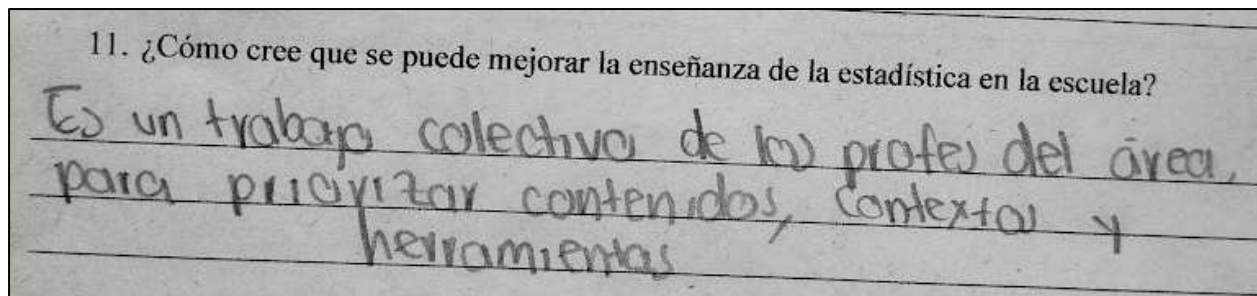 11. ¿Cómo cree que se puede mejorar la enseñanza de la estadística en la escuela?
Es un trabajo colectivo de los profes del área,
para priorizar contenidos, contextos y
herramientas